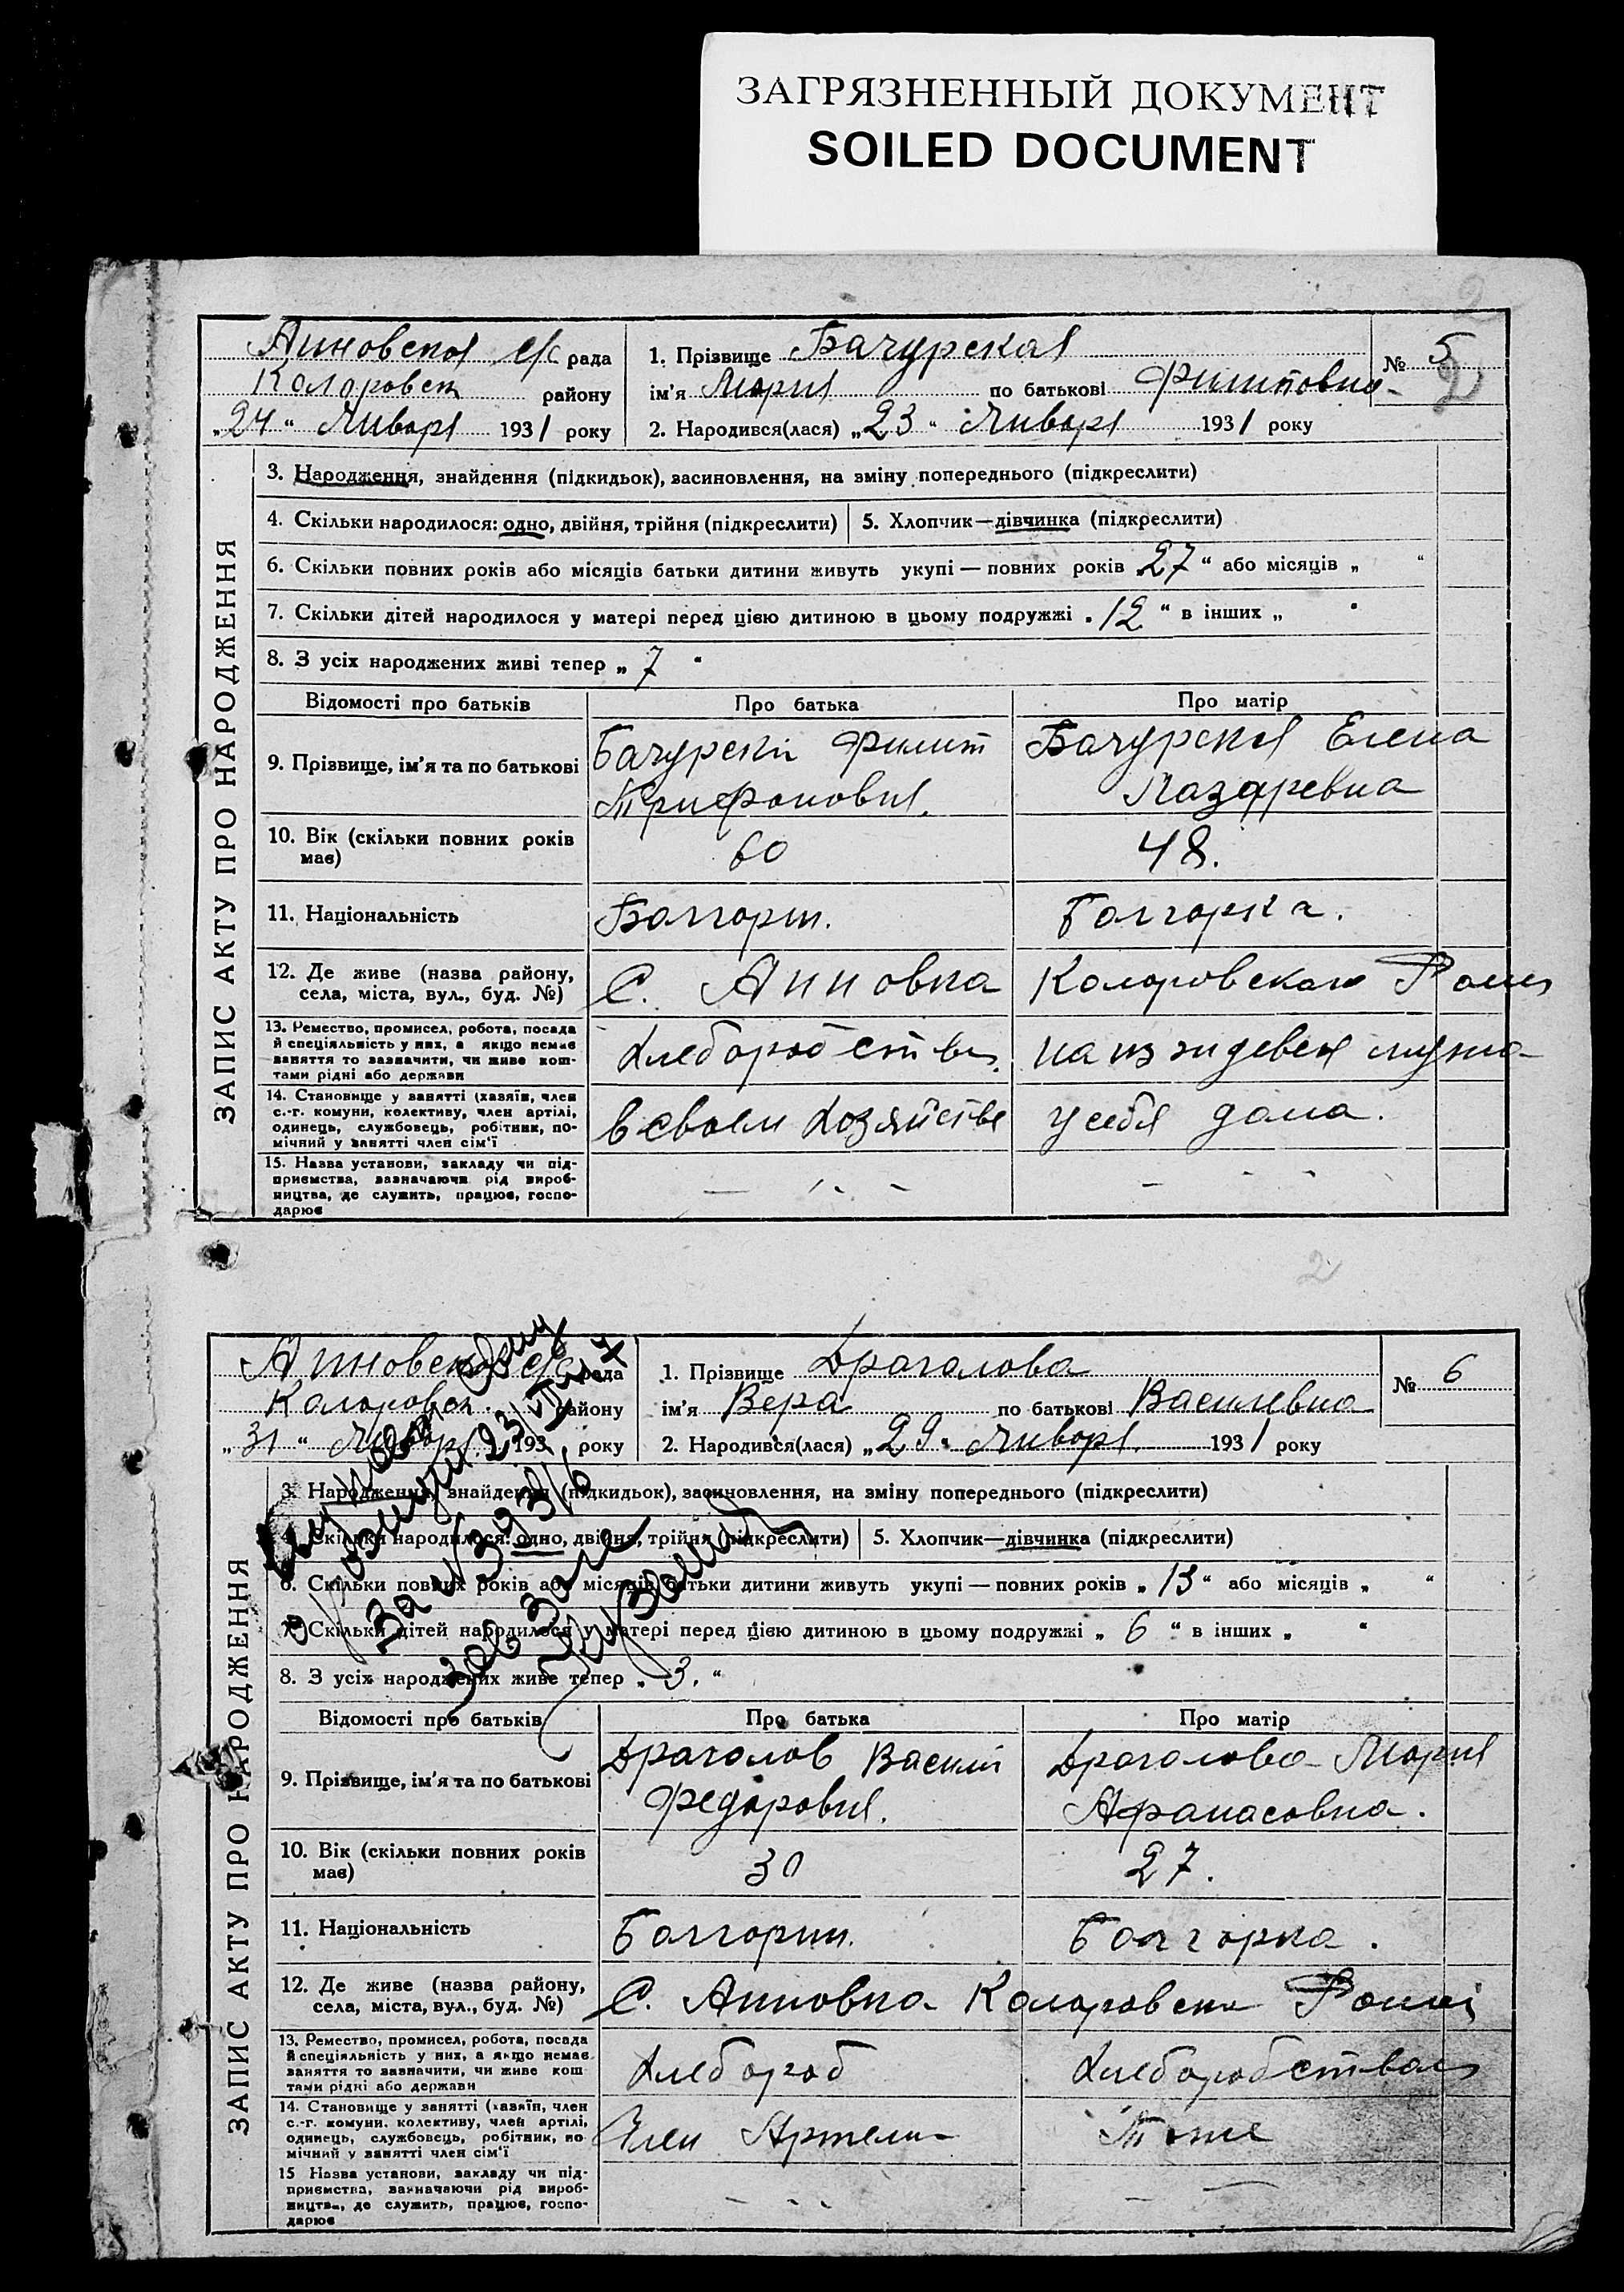 ЗАГРЯЗНЕННЫЙ ДОКУМЕНТ
SOILED DOCUMENT
2
Анновской с/с рада
Коларовск району
„24“ Января 1931 року
1. Прізвище Бачурская
ім'я Мария по батькові Филиповна
2. Народився(лася) „23“ Января 1931 року
№ 5
2
ЗАПИС АКТУ ПРО НАРОДЖЕННЯ
3. Народження, знайдення (підкидьок), засиновлення, на зміну попереднього (підкреслити)
4. Скільки народилося: одно, двійня, трійня (підкреслити) 5. Хлопчик—дівчинка (підкреслити)
6. Скільки повних років або місяців батьки дитини живуть укупі — повних років „27“ або місяців „ “
7. Скільки дітей народилося у матері перед цією дитиною в цьому подружжі „12“ в інших „ “
8. З усіх народжених живі тепер „7“
Відомості про батьків Про батька Про матір
9. Прізвище, ім'я та по батькові Бачурскі Филип Бачурская Елена
Трифонович. Лазаревна
10. Вік (скільки повних років має) 60 48.
11. Національність Болгорин. Болгорка.
12. Де живе (назва району, села, міста, вул., буд. №) С. Анновка Коларовского Района
13. Ремество, промисел, робота, посада й спеціяльність у них, а якщо немає заняття то зазначити, чи живе коштами рідні або держави Хлеборобство на иждевен мужа
14. Становище у занятті (хазяїн, член с.-г. комуни, колективу, член артілі, одинець, службовець, робітник, помічний у занятті член сім'ї в своем хозяйстве у себя дома.
15. Назва установи, закладу чи підприємства, зазначаючи рід виробництва, де служить, працює, господарює
2
Анновской с/с рада
Коларовск. району
„31“ Января 193 року
1. Прізвище Драголова
ім'я Вера по батькові Василевна
2. Народився(лася) „29“ Января 1931 року
№ 6
ЗАПИС АКТУ ПРО НАРОДЖЕННЯ
3. Народження, знайдення (підкидьок), засиновлення, на зміну попереднього (підкреслити)
4. Скільки народилося: одно, двійня, трійня (підкреслити) 5. Хлопчик—дівчинка (підкреслити)
6. Скільки повних років або місяців батьки дитини живуть укупі — повних років „13“ або місяців „ “
7. Скільки дітей народилося у матері перед цією дитиною в цьому подружжі „6“ в інших „ “
8. З усіх народжених живе тепер „3.“
Відомості про батьків Про батька Про матір
9. Прізвище, ім'я та по батькові Драголов Василі Драголова Мария
Федорович. Афанасовна.
10. Вік (скільки повних років має) 30 27.
11. Національність Болгорин. Болгорка.
12. Де живе (назва району, села, міста, вул., буд. №) С. Анновка Коларовска
13. Ремество, промисел, робота, посада й спеціяльність у них, а якщо немає заняття то зазначити, чи живе коштами рідні або держави Хлебороб
14. Становище у занятті (хазяїн, член с.-г. комуни, колективу, член артілі, одинець, службовець, робітник, помічний у занятті член сім'ї Член Артели Тоже
15 Назва установи, закладу чи підприємства, зазначаючи рід виробництва, де служить, працює, господарює